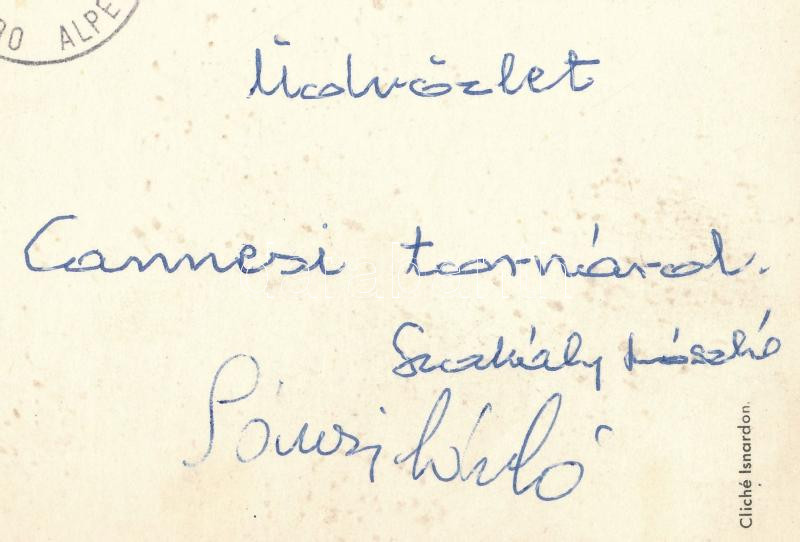 00 ALPE
Üdvözlet
Cannesi tornáról.
Szakály László
László
Cliché Isnardon.